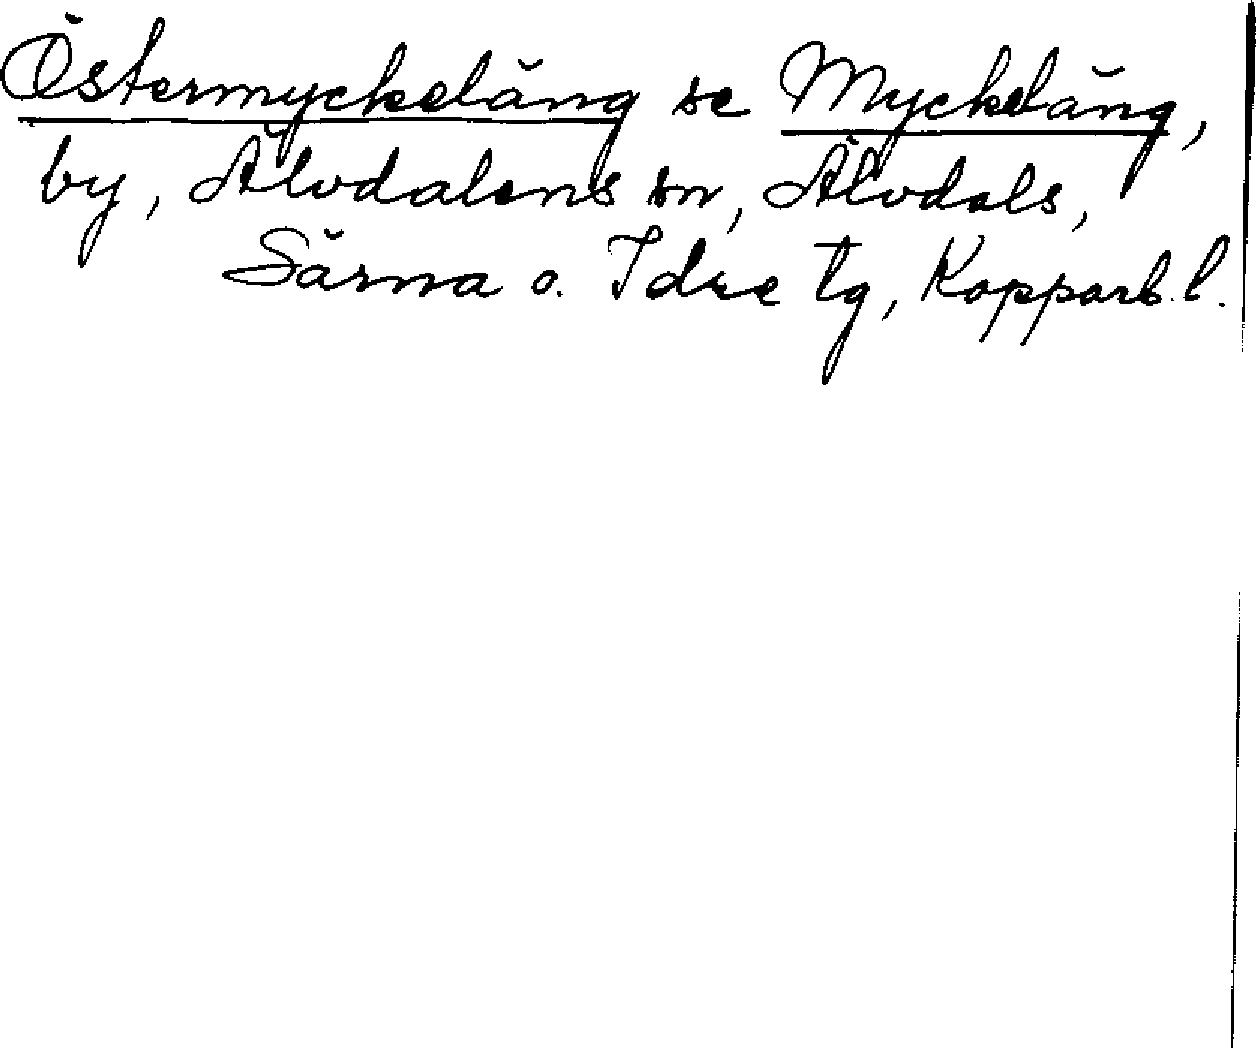 Östermyckeläng se Myckeläng,
by, Älvdalens sn, Älvdals,
Särna o. Idre tg, Kopparb. l.